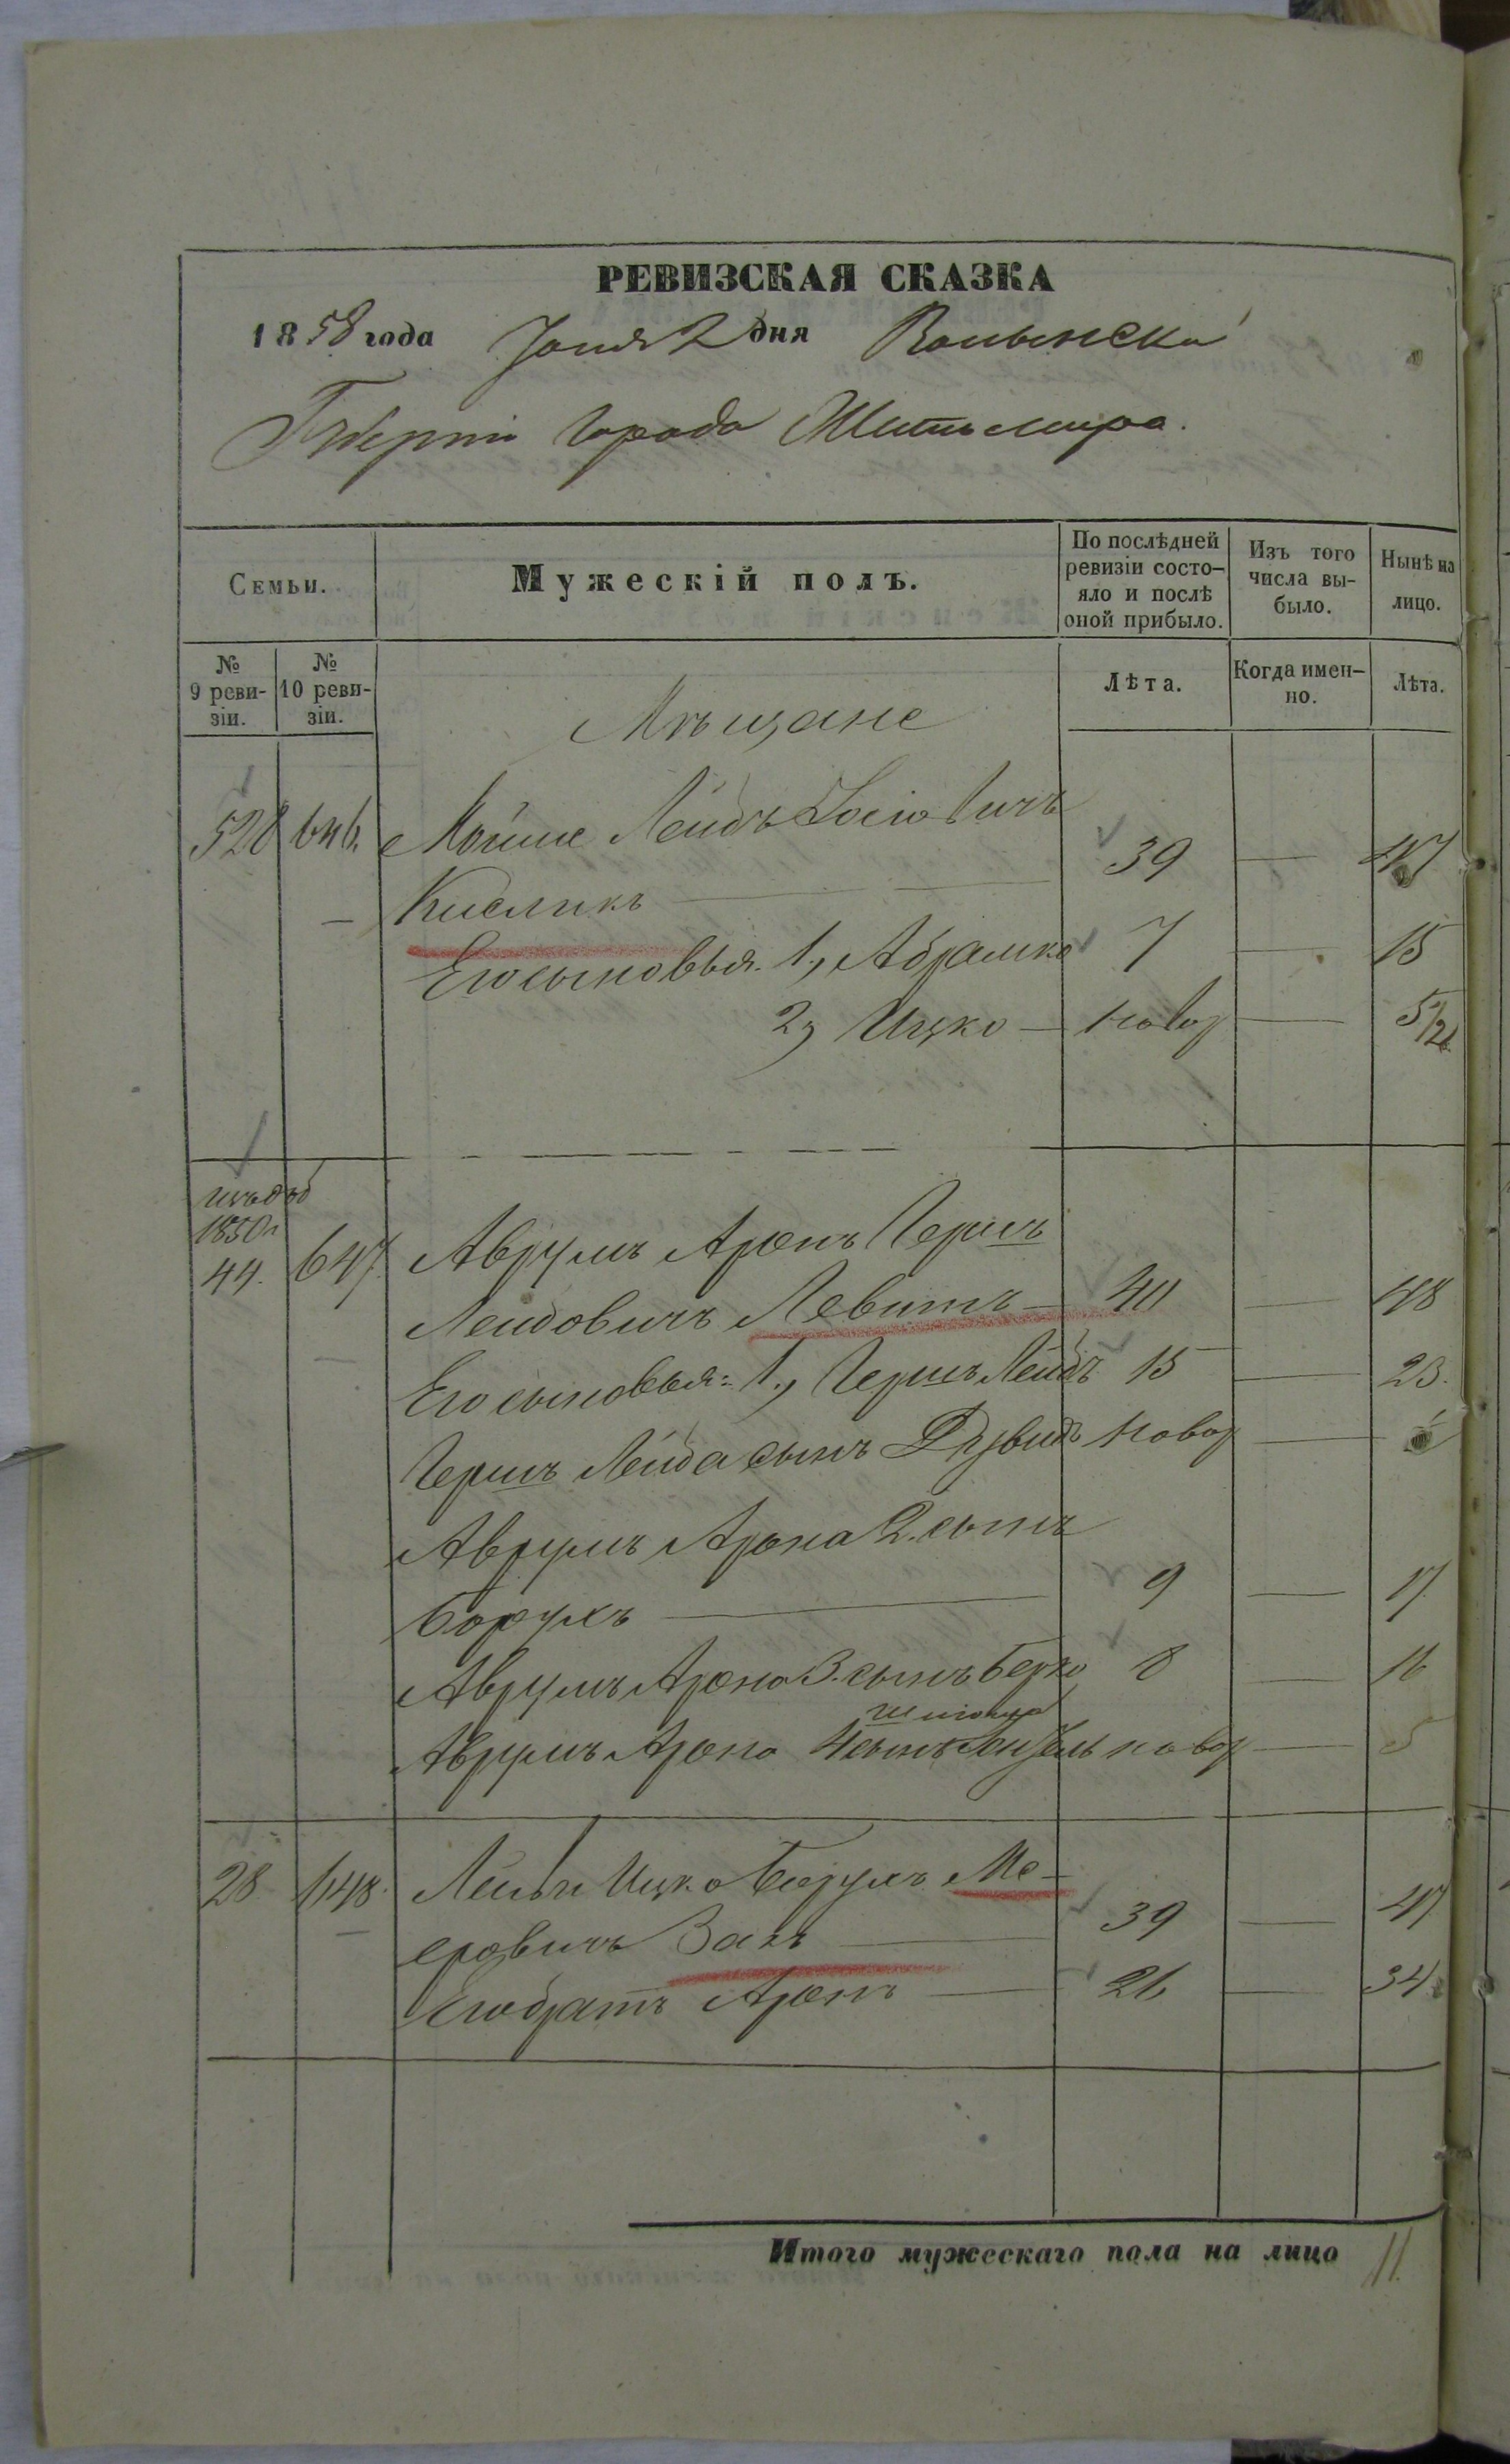 РЕВИЗСКАЯ СКАЗКА
1858 года Іюня 2 дня Волынской
Губерніи города Житомира.
Семьи. Мужескій полъ. По послѣдней ревизіи состо-яло и послѣ оной прибыло. Изъ того числа вы-было. Нынѣ на лицо.
№ 9 реви-зіи. № 10 реви-зіи. Лѣта. Когда имен-но. Лѣта.
Мѣщане
528 646. Мошко Лейбъ Іосіовичъ
Кисликъ — 39 — 47
Его сыновья. 1, Абрамко 7 — 15
2, Ицко — новор — 5 1/2
1850 г
44. 647. Аврумъ Аронъ Гершъ
Лейбовичъ Левитъ — 40 — 48
Его сыновья: 1, Гершъ Лейбъ 15 — 23.
Гершъ Лейба сынъ новор —
Аврумъ Арона 2. сынъ
Борухъ — 9 — 17.
Аврумъ Арона 3. сынъ Берко 8 — 16
Аврумъ Арона 4 сынъ новор — 5
28. 648. Ицко Борухъ Ме-
еровичъ Закъ — 39 — 47
Его братъ Аронъ — 26 — 34
Итого мужескаго пола на лицо 11.